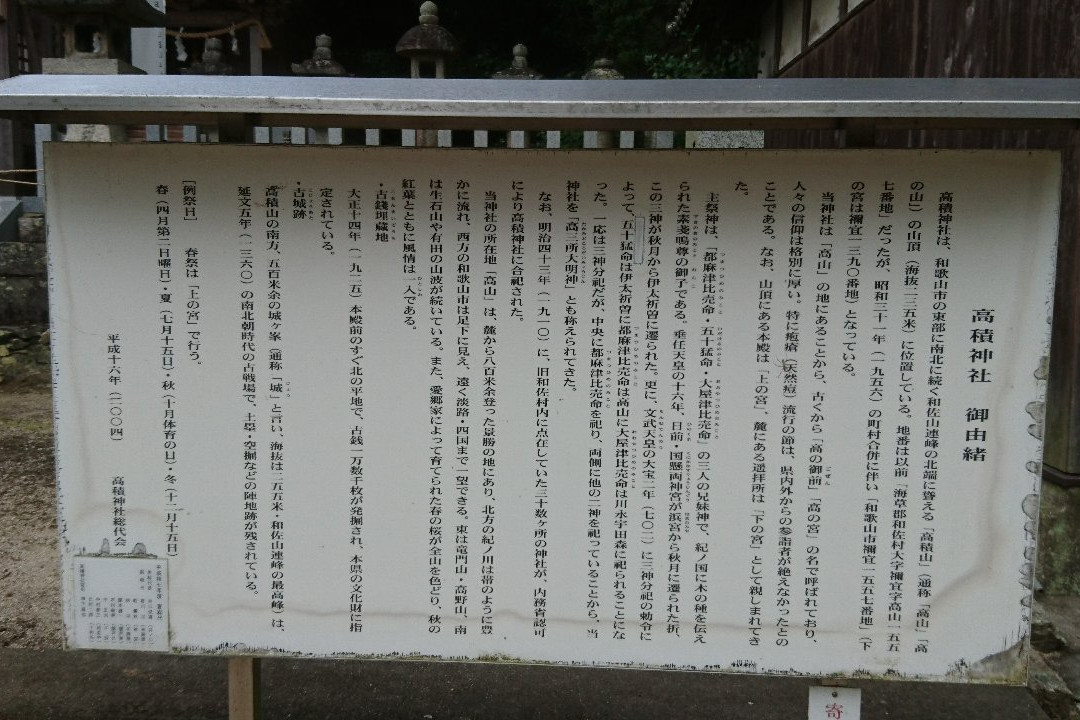 高積神社 御由緒
高積神社は、和歌山市の東部に南北に続く和佐山連峰の北端に聳える「高積山」(通称「高山」「高
の山」)の山頂(海抜二三五米)に位置している。地番は以前「海草郡和佐村大字禰宜字高山一五五
七番地」だったが、昭和三十一年(一九五六)の町村合併に伴い「和歌山市禰宜一五五七番地」(下
の宮は禰宜一三九〇番地)となっている。
当神社は「高山」の地にあることから、古くから「高の御前」「高の宮」の名で呼ばれており、
人々の信仰は格別に厚い。特に疱瘡(天然痘)流行の節は、県内外からの参詣者が絶えなかったとの
ことである。なお、山頂にある本殿は「上の宮」、麓にある遥拝所は「下の宮」として親しまれてき
た。
主祭神は、「都麻津比売命・五十猛命・大屋津比売命」の三人の兄妹神で、紀ノ国に木の種を伝え
られた素戔嗚尊の御子である。垂仁天皇の十六年、日前・国懸両神宮が浜宮から秋月に遷られた折、
この三神が秋月から伊太祈曽に遷られた。更に、文武天皇の大宝二年(七〇二)に三神分祀の勅令に
よって、五十猛命は伊太祈曽に都麻津比売命は高山に大屋津比売命は川永宇田森に祀られることにな
った。一応は三神分祀だが、中央に都麻津比売命を祀り、両側に他の二神を祀っていることから、当
神社を「高三所大明神」とも称えられてきた。
なお、明治四十三年(一九一〇)に、旧和佐村内に点在していた三十数ヶ所の神社が、内務省認可
により高積神社に合祀された。
当神社の所在地「高山」は、麓から八百米余登った景勝の地にあり、北方の紀ノ川は帯のように豊
かに流れ、西方の和歌山市は足下に見え、遠く淡路・四国まで一望できる。東は竜門山・高野山、南
は生石山や有田の山波が続いている。また、愛郷家によって育てられた春の桜が全山を色どり、秋の
紅葉とともに風情は一入である。
・古銭埋蔵地
大正十四年(一九二五)本殿前のすぐ北の平地で、古銭一万数千枚が発掘され、本県の文化財に指
定されている。
・古城跡
高積山の南方、五百米余の城ヶ峯(通称「城」と言い、海抜は二五五米・和佐山連峰の最高峰)は、
延文五年(一三六〇)の南北朝時代の古戦場で、土塁・空掘などの陣地跡が残されている。
[例祭日] 春祭は「上の宮」で行う。
春(四月第二日曜日)・夏(七月十五日)・秋(十月体育の日)・冬(十二月十五日)
平成十六年(二〇〇四) 高積神社総代会
寄